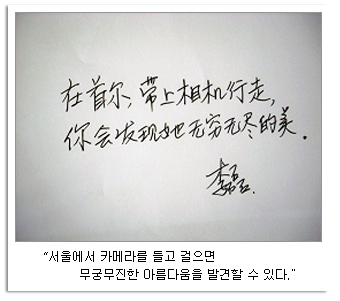 在首尔，带上相机行走，
你会发现她无穷无尽的美．
李磊．
“서울에서 카메라를 들고 걸으면
무궁무진한 아름다움을 발견할 수 있다.”